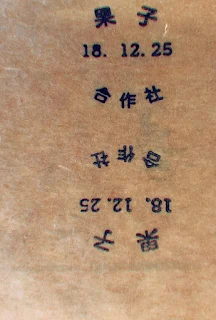 果子
18. 12. 25
合作社
合作社
18. 12. 25
果子